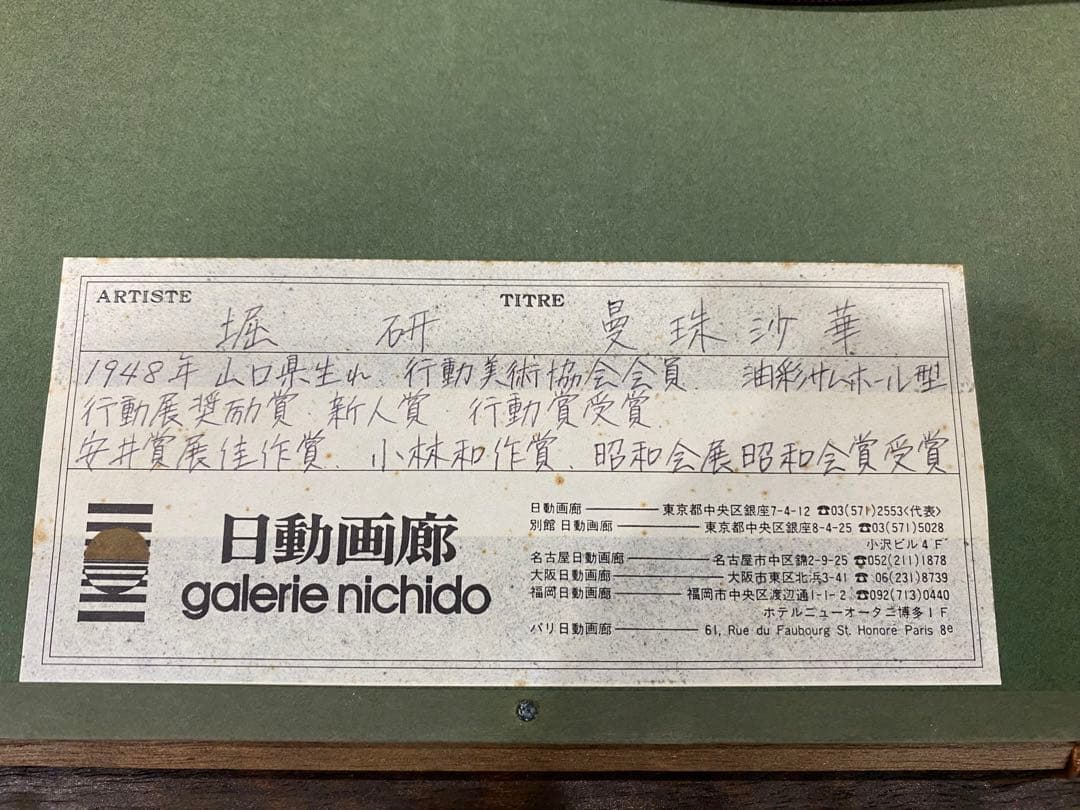 ARTISTE 堀 研 TITRE 曼珠沙華
1948年 山口県生れ、行動美術協会会員 油彩サムホール型
行動展奨励賞、新人賞 行動賞受賞
安井賞展佳作賞、小林和作賞、昭和会展昭和会賞受賞
日動画廊
galerie nichido
日動画廊 東京都中央区銀座7-4-12 ☎03(571)2553〈代表〉
別館 日動画廊 東京都中央区銀座8-4-25 ☎03(571)5028
小沢ビル4F
名古屋日動画廊 名古屋市中区錦2-9-25 ☎052(211)1878
大阪日動画廊 大阪市東区北浜3-41 ☎ 06(231)8739
福岡日動画廊 福岡市中央区渡辺通1-1-2 ☎092(713)0440
ホテルニューオータニ博多1F
パリ日動画廊 61, Rue du Faubourg St. Honoré Paris 8e